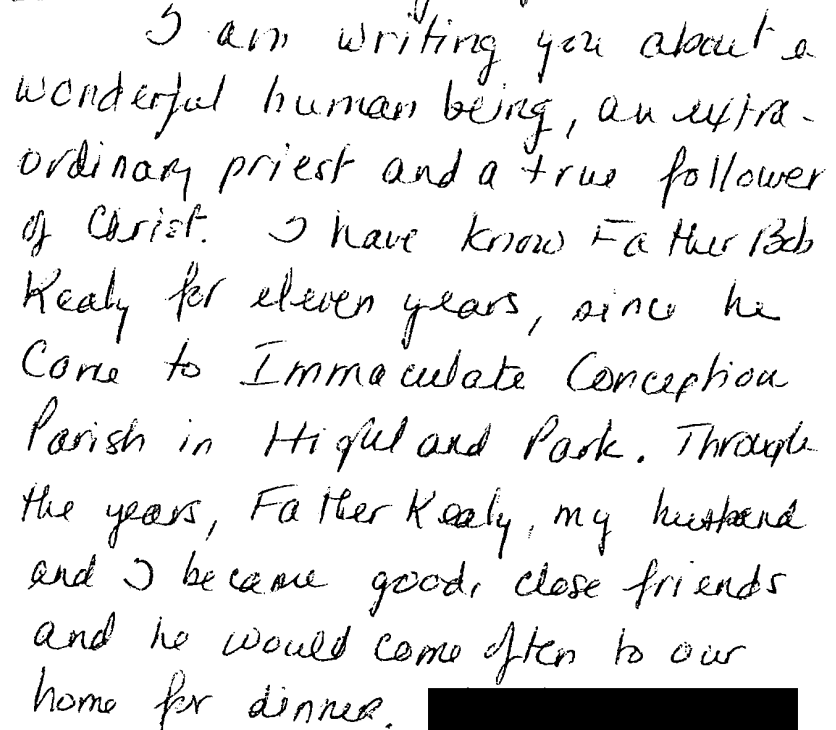 I am writing you about a
wonderful human being, an extra-
ordinary priest and a true follower
of Christ. I have know Father Bob
Kealy for eleven years, since he
came to Immaculate Conception
Parish in Highland Park. Through
the years, Father Kealy, my husband
and I became good, close friends
and he would come often to our
home for dinner.